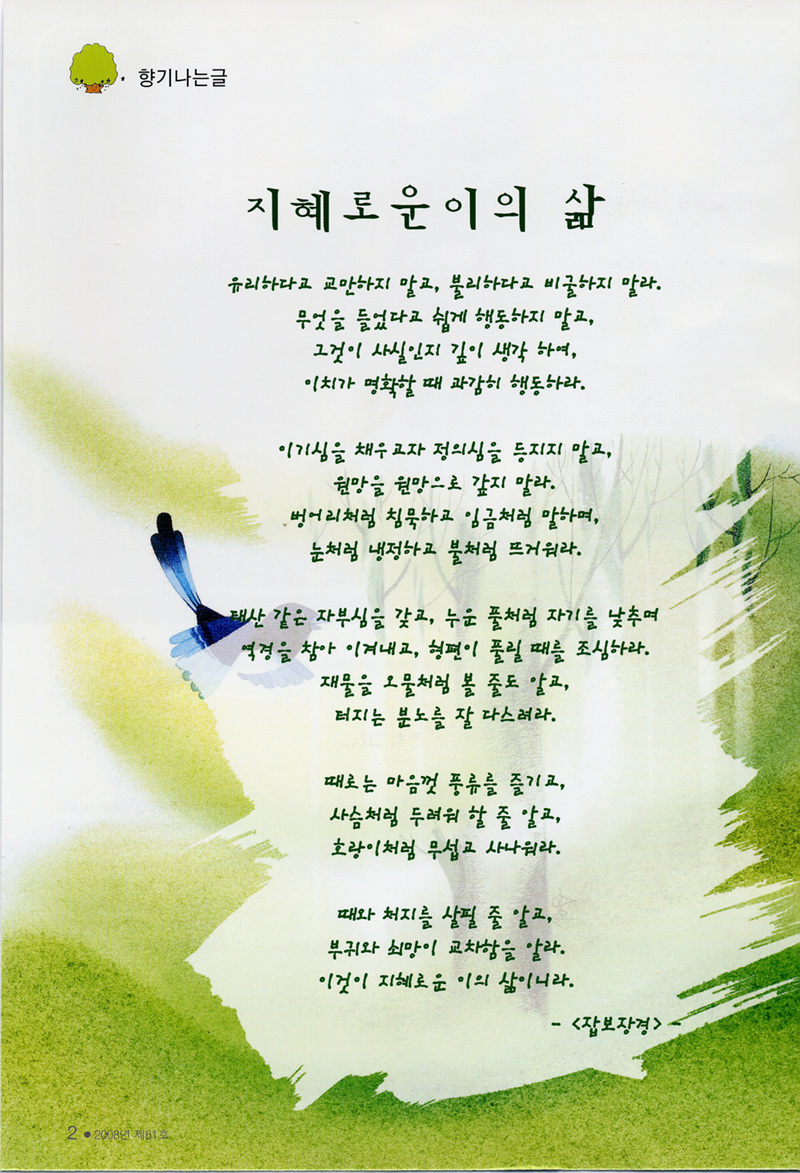 향기나는글
지혜로운이의 삶
유리하다고 교만하지 말고, 불리하다고 비굴하지 말라.
무엇을 들었다고 쉽게 행동하지 말고,
그것이 사실인지 깊이 생각 하여,
이치가 명확할 때 과감히 행동하라.
이기심을 채우고자 정의심을 등지지 말고,
원망을 원망으로 갚지 말라.
벙어리처럼 침묵하고 임금처럼 말하며,
눈처럼 냉정하고 불처럼 뜨거워라.
태산 같은 자부심을 갖고, 누운 풀처럼 자기를 낮추며
역경을 참아 이겨내고, 형편이 풀릴 때를 조심하라.
재물을 오물처럼 볼 줄도 알고,
터지는 분노를 잘 다스려라.
때로는 마음껏 풍류를 즐기고,
사슴처럼 두려워 할 줄 알고,
호랑이처럼 무섭고 사나워라.
때와 처지를 살필 줄 알고,
부귀와 쇠망이 교차함을 알라.
이것이 지혜로운 이의 삶이니라.
- <잡보장경> -
2 ● 2008년 제61호